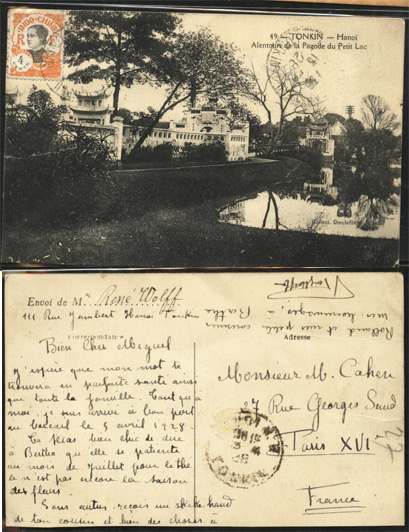 INDO-CHINE
4
49 - TONKIN - Hanoï
Alentours de la Pagode du Petit Lac
Collect. Dieulefils
Envoi de Mr René Wolff
111 Rue Jambert Hanoi Tonkin
Correspondance
Adresse
Bien Cher Miguel
J'espère que mon mot te
trouvera en parfaite santé ainsi
que toute la famille. Quant à
moi, je suis arrivé à bon port
au bercail le 5 avril 1928.
Tu seras bien chic de dire
à Berthe qu'elle se patiente
au mois de Juillet pour le thé
ce n'est pas encore la saison
des fleurs.
Sans autre, reçois un shake hand
de ton cousin et bien des choses à
Rolland et ma petite cousine
mes hommages à Berthe
Monsieur M. Cahen
27 Rue Georges Sand
Paris XVI
France
27
TONKIN